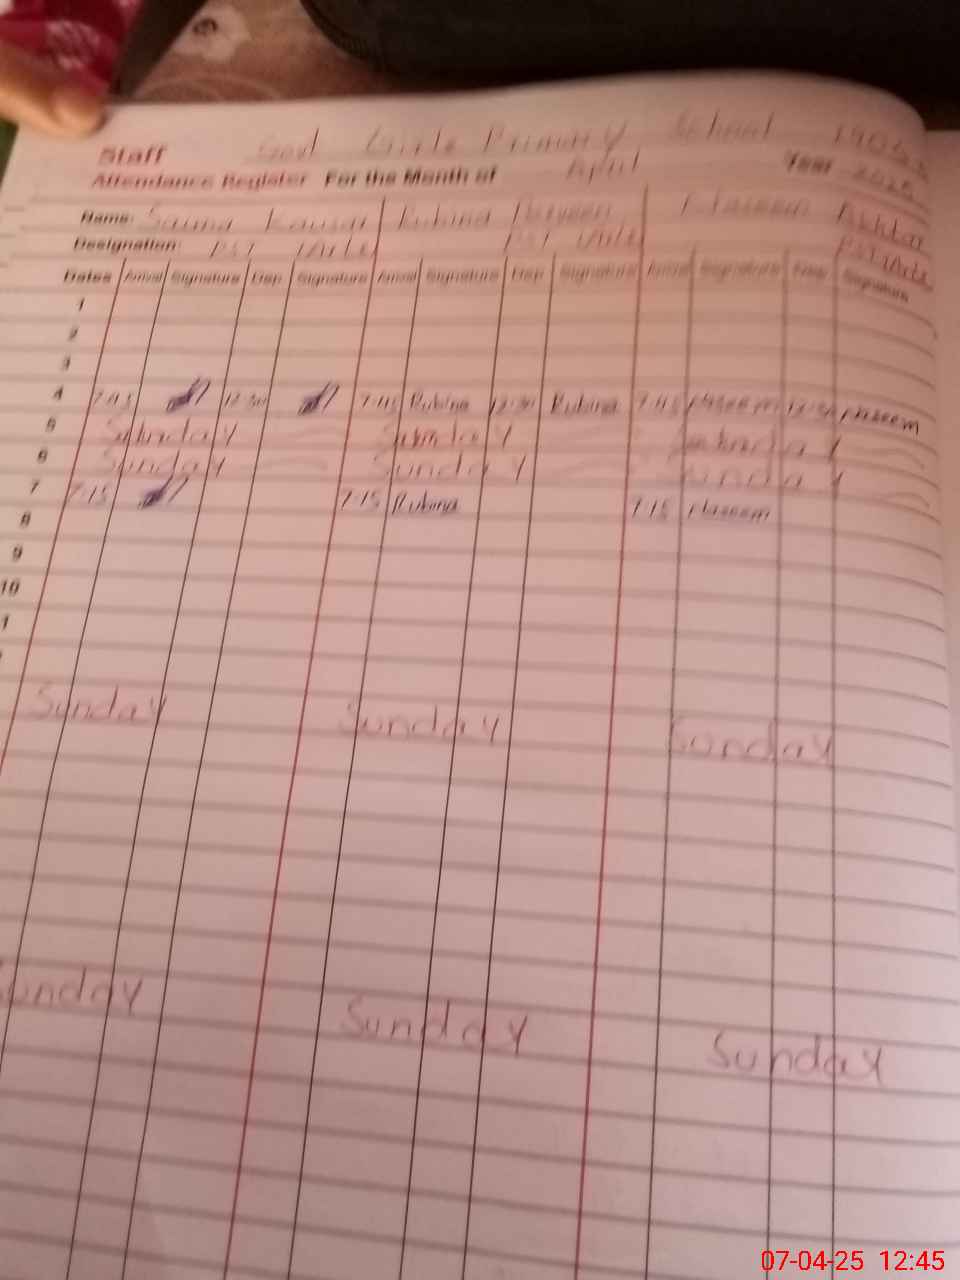 Staff Govt Girls Primary School
Attendance Register For the Month of April Year 2025
Name: Saima Kausar Rubina Parveen Naseem Akhtar
Designation: PST PST PST
Dates Arrival Signature Dep Signature Arrival Signature Dep Signature Arrival Signature Dep Signature
1
2
3
4 7:45 12:30 7:45 Rubina 12:30 Rubina 7:45 Naseem 12:30 Naseem
5 Saturday Saturday Saturday
6 Sunday Sunday Sunday
7 7:15 7:15 Rubina 7:15 Naseem
8
9
10
1
Sunday Sunday Sunday
Sunday Sunday Sunday
07-04-25 12:45